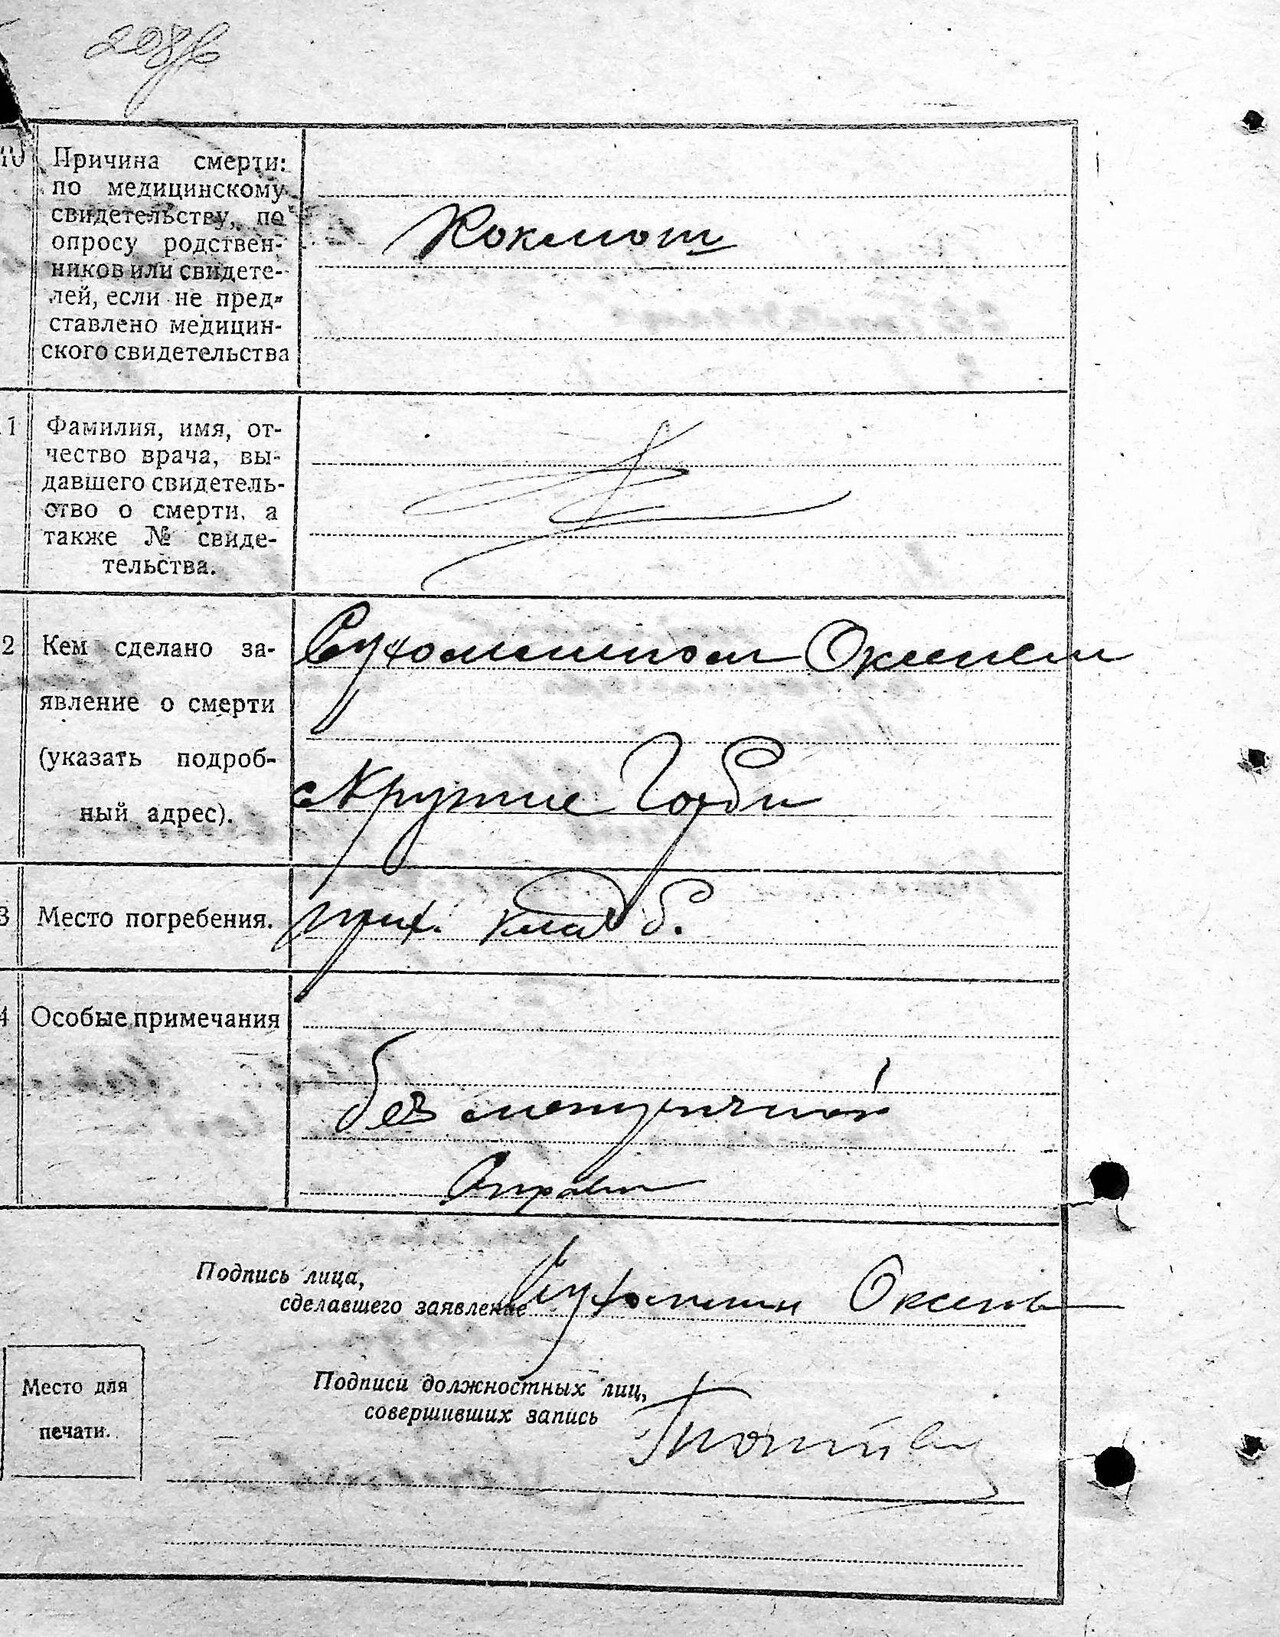 10
Причина смерти:
по медицинскому
свидетельству, по
опросу родствен-
ников или свидете-
лей, если не пред-
ставлено медицин-
ского свидетельства
Коклюш
1
Фамилия, имя, от-
чество врача, вы-
давшего свидетель-
ство о смерти, а
также № свиде-
тельства.
2
Кем сделано за-
явление о смерти
(указать подроб-
ный адрес).
Сухомлином
с Крутые Горби
3
Место погребения.
прих. клад б.
4
Особые примечания
без
Справки
Подпись лица,
сделавшего заявление
Сухомлин
Место для
печати.
Подписи должностных лиц,
совершивших запись